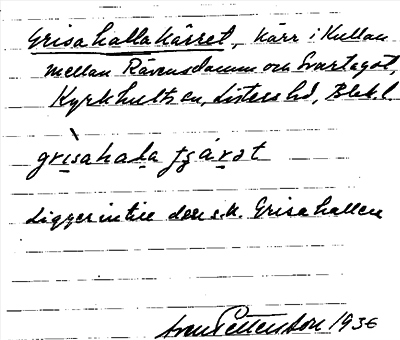 Grisahallakärret, kärr i Kullan
mellan Rävensdamm och Svartagöl,
Kyrkhults sn, Listers hd, Blek. l.
grisahala ʈʂárət
Ligger intill den s.k. Grisahallen
Sven Pettersson 1936